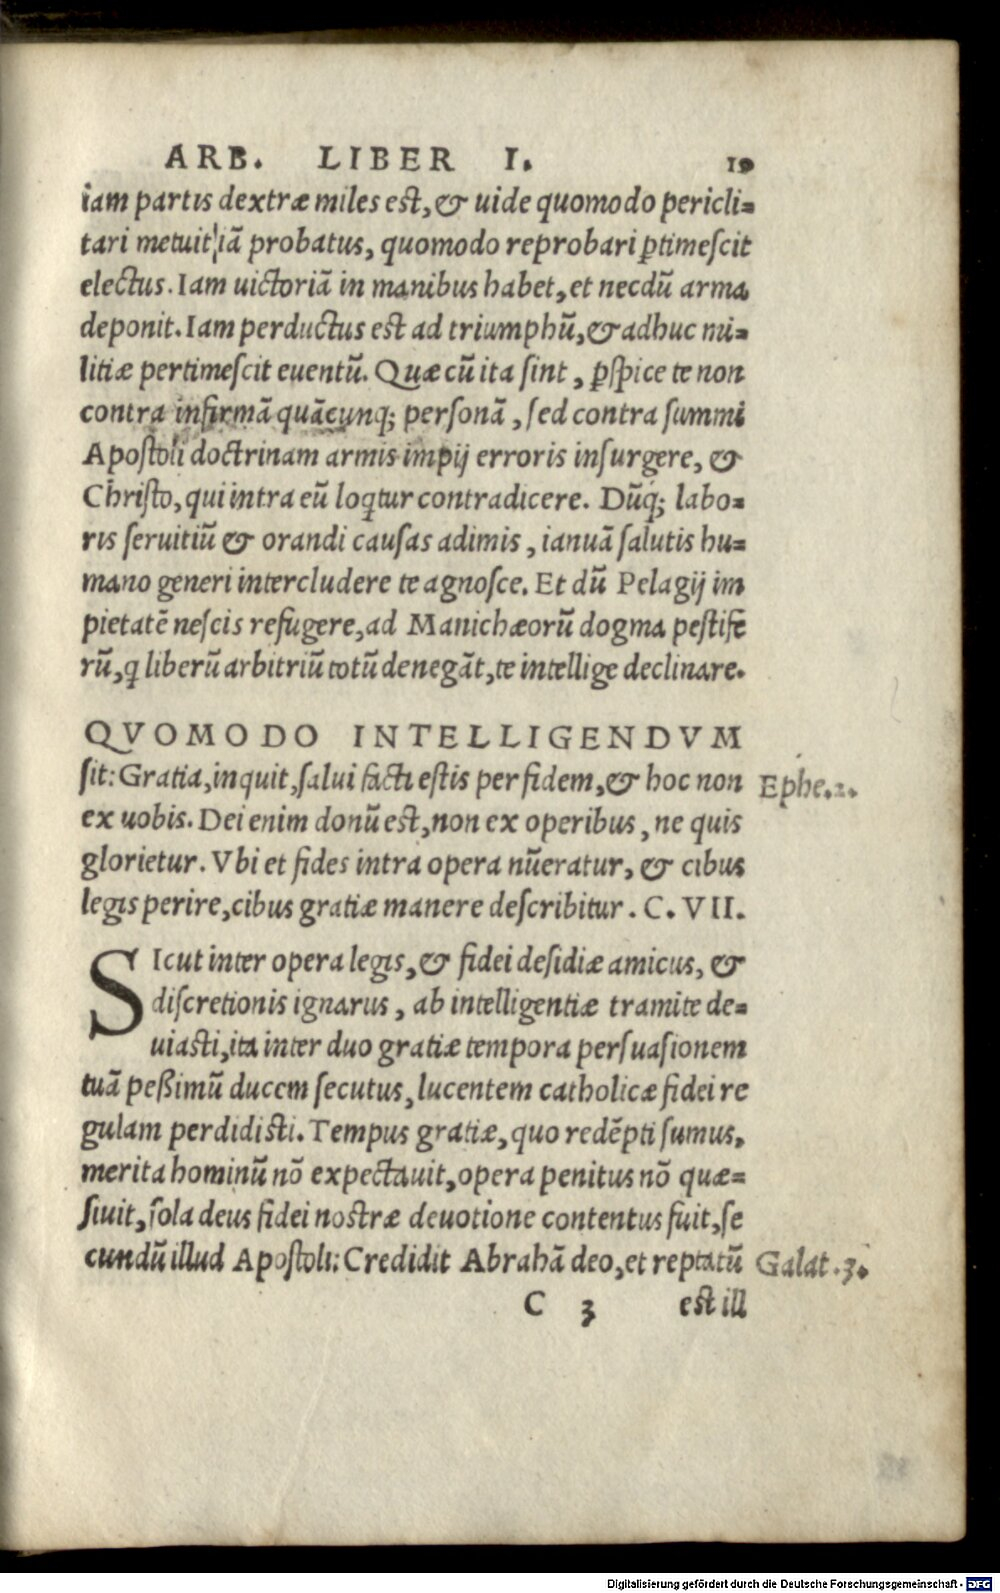 ARB. LIBER I. 19
iam partis dextræ miles est, & uide quomodo pericli=
tari metuit iā probatus, quomodo reprobari ꝑtimeſcit
electus. Iam uictoriā in manibus habet, et necdū arma
deponit. Iam perductus est ad triumphū, & adhuc mi=
litiæ pertimeſcit euentū. Quæ cū ita ſint, ꝑſpice te non
contra infirmā quācunq; perſonā, ſed contra ſummi
Apoſtoli doctrinam armis impij erroris inſurgere, &
Chriſto, qui intra eū loꝗtur contradicere. Dūq; labo=
ris ſeruitiū & orandi cauſas adimis, ianuā ſalutis hu=
mano generi intercludere te agnoſce. Et dū Pelagij im
pietatē neſcis refugere, ad Manichæorū dogma peſtife
rū, ꝗ liberū arbitriū totū denegāt, te intellige declinare.
QVOMODO INTELLIGENDVM
ſit: Gratia, inquit, ſalui facti eſtis per fidem, & hoc non
Ephe. 2.
ex uobis. Dei enim donū est, non ex operibus, ne quis
glorietur. Vbi et fides intra opera nūeratur, & cibus
legis perire, cibus gratiæ manere deſcribitur. C. VII.
SIcut inter opera legis, & fidei deſidiæ amicus, &
diſcretionis ignarus, ab intelligentiæ tramite de=
uiasti, ita inter duo gratiæ tempora perſuaſionem
tuā peßimū ducem ſecutus, lucentem catholicæ fidei re
gulam perdidisti. Tempus gratiæ, quo redēpti ſumus,
merita hominū nō expectauit, opera penitus nō quæ=
ſiuit, ſola deus fidei noſtræ deuotione contentus fuit, ſe
cundū illud Apoſtoli: Credidit Abrahā deo, et reptatū
Galat. 3.
C 3 est ill
Digitalisierung gefördert durch die Deutsche Forschungsgemeinschaft - DFG